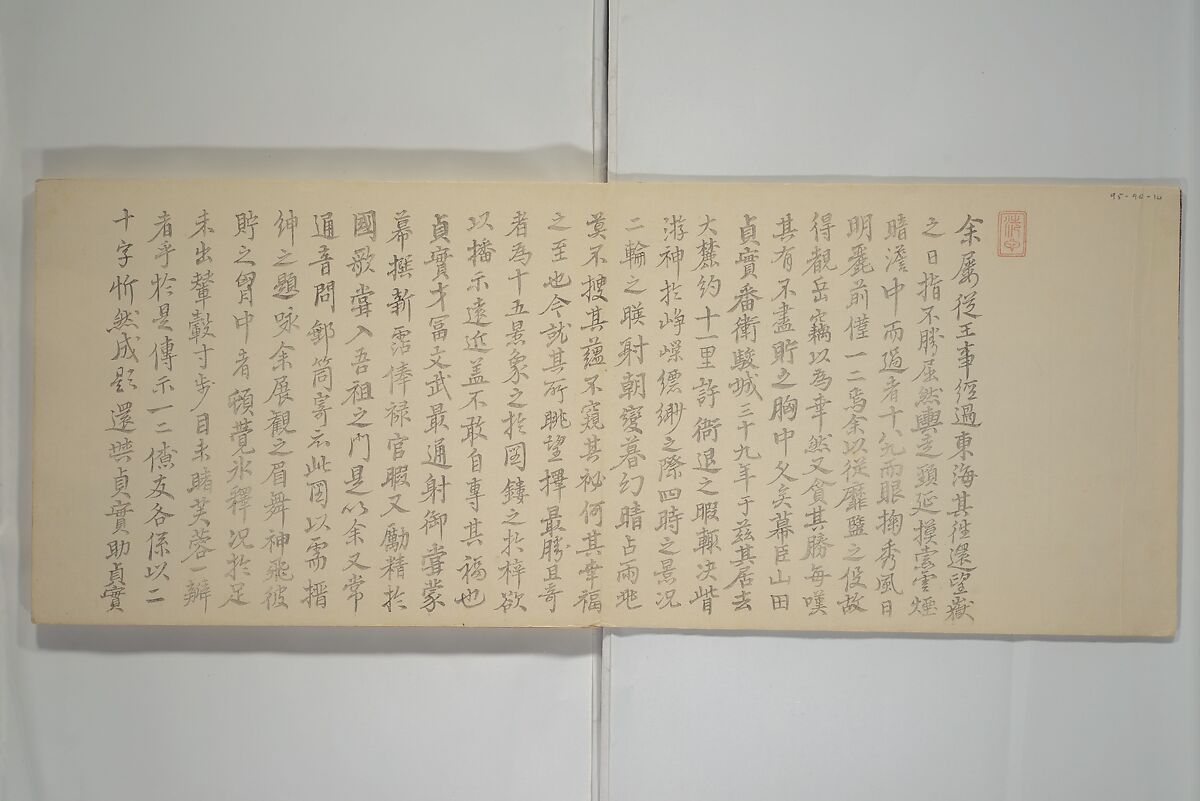 95-98-12
余屢従王事經過東海其徃還望嶽
之日指不勝屈然輿走頭延摸雲煙
暗澹中而過者十八九而眼掬秀風日
明麗前僅一二焉余以従靡盬之役故
得觀岳竊以為幸然又貪其勝每嘆
其有不盡貯之胸中久矣幕臣山田
貞實番衛駿城三十九年于茲其居去
大麓約十一里許衙退之暇輙决眥
游神於崢嶸縹緲之際四時之景况
二輪之暎射朝變暮幻晴占雨兆
莫不捜其蘊不窺其祕何其幸福
之至也今就其所眺望擇最勝且奇
者為十五景象之於図鏤之於梓欲
以播示遠近盖不敢自專其福也
貞實才冨文武最通射御甞蒙
幕撰新霑俸禄官暇又勵精於
國歌甞入吾祖之門是以余又常
通音問郵筒寄示此図以需搢
紳之題咏余展觀之眉舞神飛彼
貯之胷中者頓覺氷釋况於足
未出輦轂寸步目未睹芙蓉一瓣
者乎於是傳示一二僚友各係以二
十字忻然成題還璧貞實助貞實